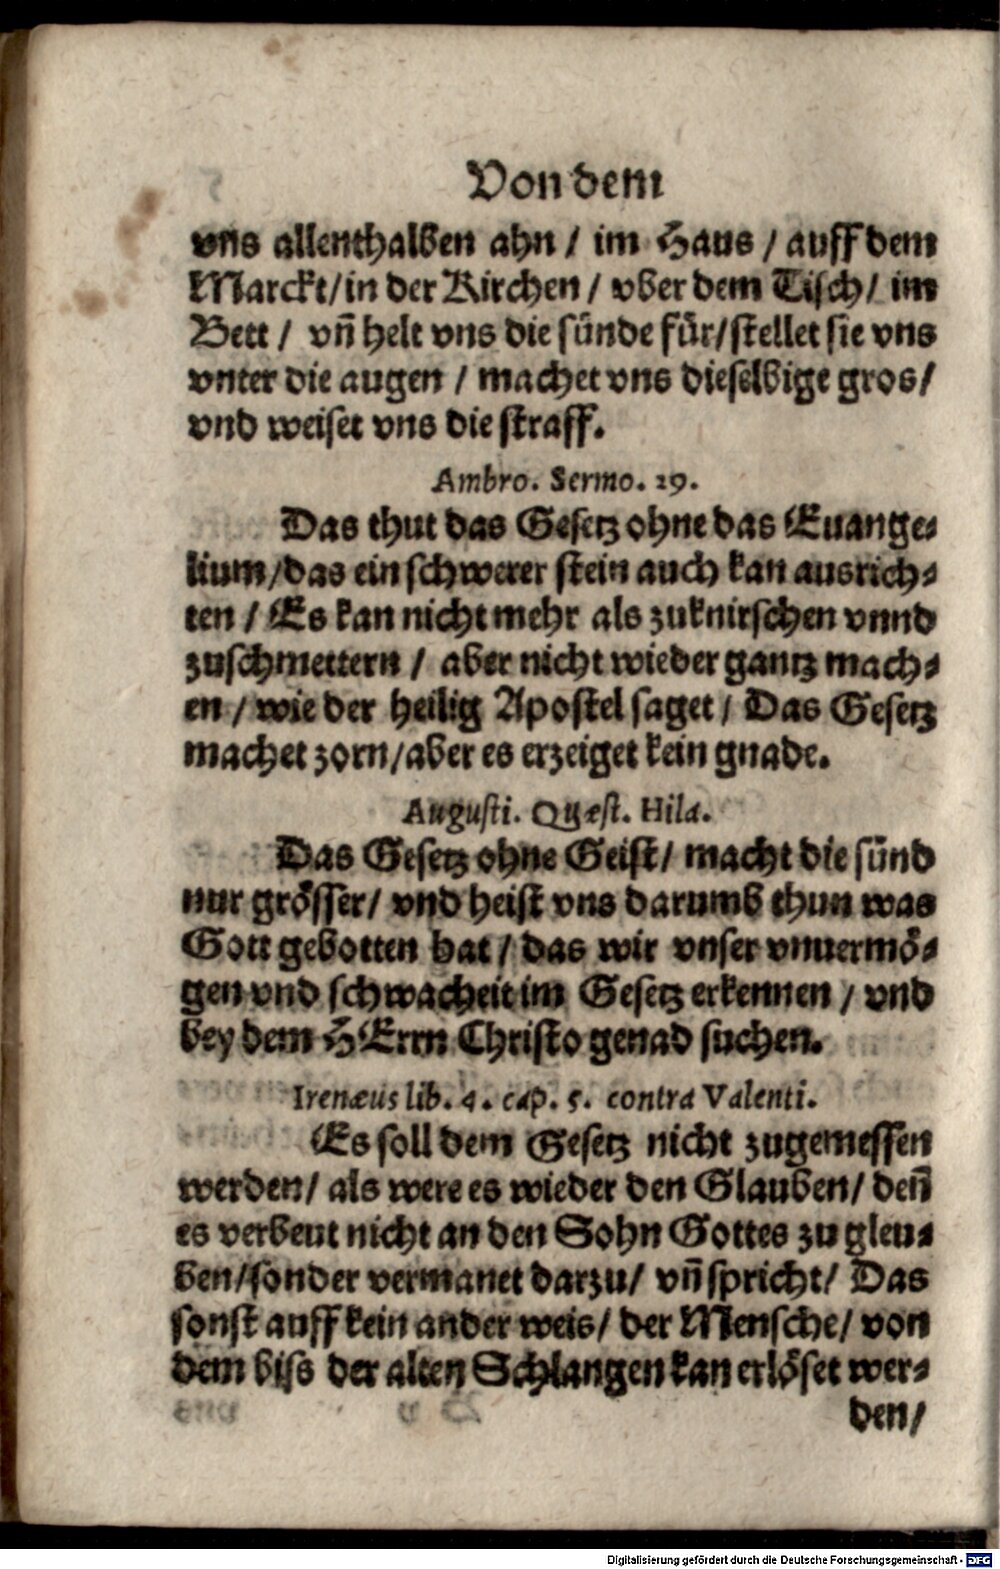 Von dem
vns allenthalben ahn / im Haus / auff dem
Marckt / in der Kirchen / vber dem Tisch / im
Bett / vñ helt vns die sünde für / stellet sie vns
vnter die augen / machet vns dieselbige gros /
vnd weiset vns die straff.
Ambro. Sermo. 29.
Das thut das Gesetz ohne das Euange-
lium / das ein schwerer stein auch kan ausrich-
ten / Es kan nicht mehr als zuknirschen vnnd
zuschmettern / aber nicht wieder gantz mach-
en / wie der heilig Apostel saget / Das Gesetz
machet zorn / aber es erzeiget kein gnade.
Augusti. Quæst. Hila.
Das Gesetz ohne Geist / macht die sünd
nur grösser / vnd heist vns darumb thun was
Gott gebotten hat / das wir vnser vnuermö-
gen vnd schwacheit im Gesetz erkennen / vnd
bey dem HErrn Christo genad suchen.
Irenæus lib. 4. cap. 5. contra Valenti.
Es soll dem Gesetz nicht zugemessen
werden / als were es wieder den Glauben / deñ
es verbeut nicht an den Sohn Gottes zu gleu-
ben / sonder vermanet darzu / vñ spricht / Das
sonst auff kein ander weis / der Mensche / von
dem biss der alten Schlangen kan erlöset wer-
den /
Digitalisierung gefördert durch die Deutsche Forschungsgemeinschaft - DFG